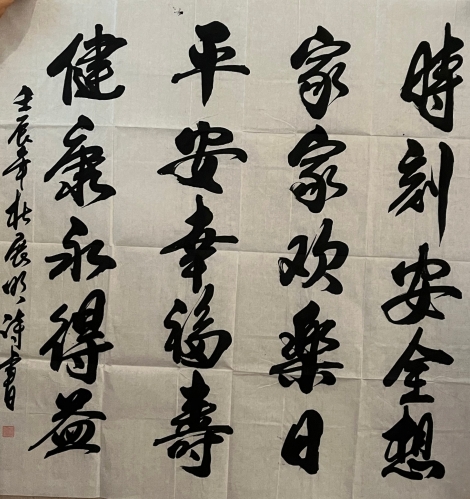 時刻安全想
家家欢樂日
平安幸福壽
健康永得益
壬辰年杜展明詩書